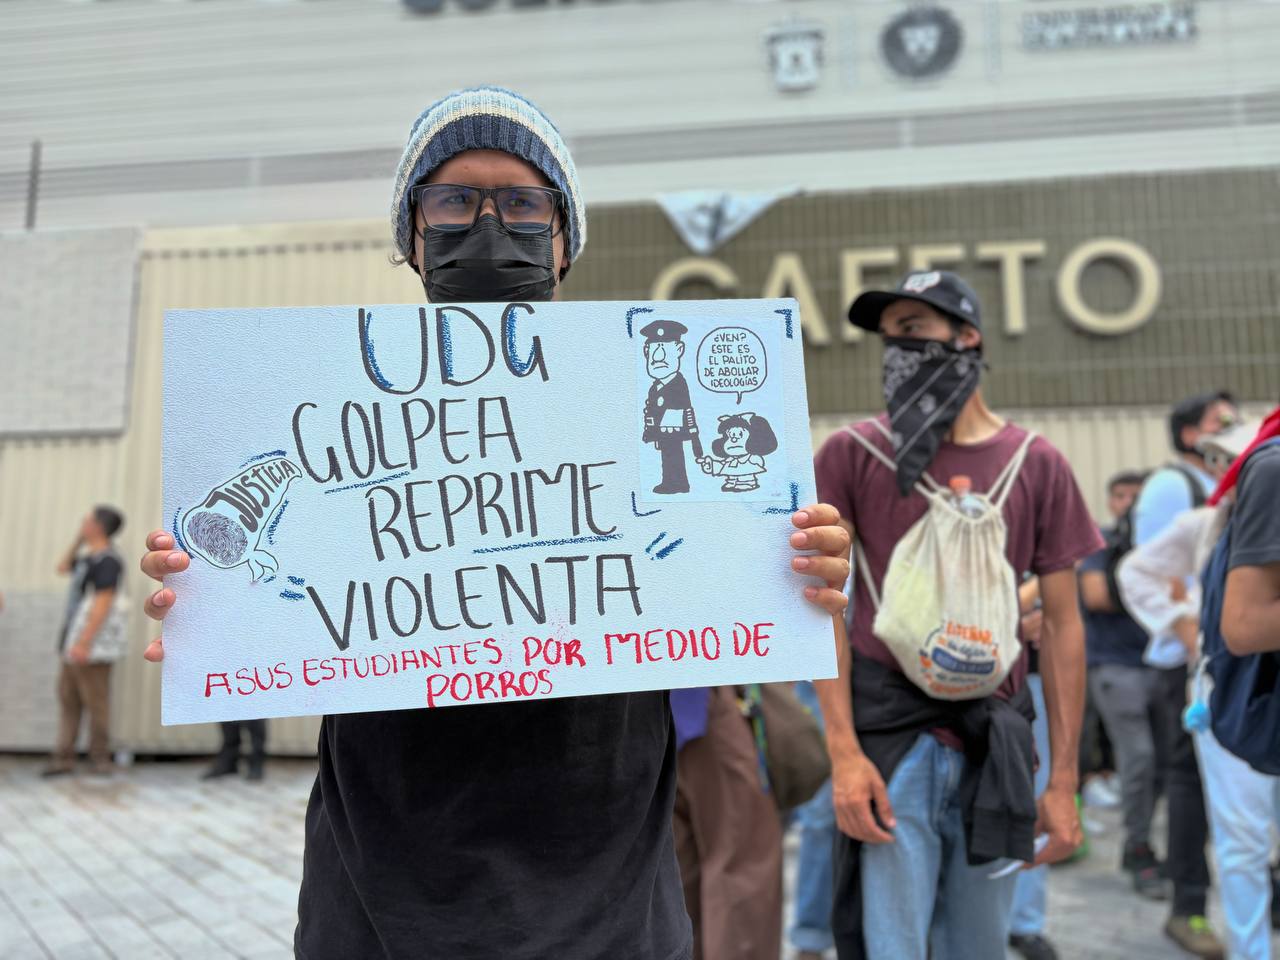 CAFETO
UDG
GOLPEA
REPRIME
VIOLENTA
A SUS ESTUDIANTES POR MEDIO DE
PORROS
JUSTICIA
¿VEN?
ESTE ES
EL PALITO
DE ABOLLAR
IDEOLOGÍAS